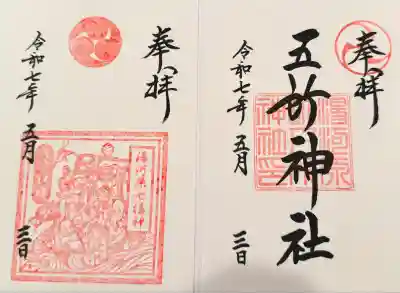 奉拝
五所神社
令和七年 五月 三日
奉拝
令和七年 五月 三日
湯河原七福神